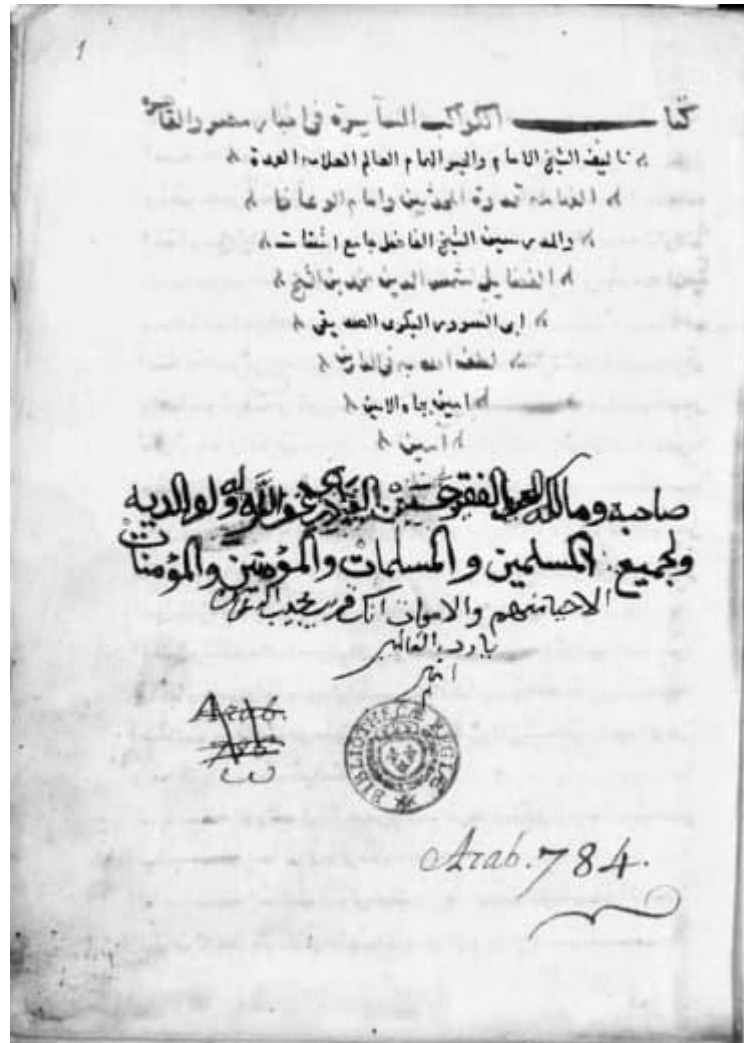 1
كتاب الكواكب السآيرة فى اخبار مصر والقاهرة
تاليف الشيخ الامام والحبر الهمام العالم العلامة العمدة
الفهامه قدوة المحدثين وامام الوعاظ
والمدرسين الشيخ الفاضل جامع اشتات
الفضايل شمس الدين محمد بن الشيخ
ابى السرور البكرى الصديقى
لطف الله به فى الدارين
امين بجاه الامين
آمين
صاحبه ومالكه الفقير حسين غفر الله له ولوالديه
ولجميع المسلمين والمسلمات والمؤمنين والمؤمنات
الاحيا منهم والاموات انك قريب مجيب
يا رب العالمين
امين
Arab.
BIBLIOTHECÆ REGIÆ
Arab. 784.